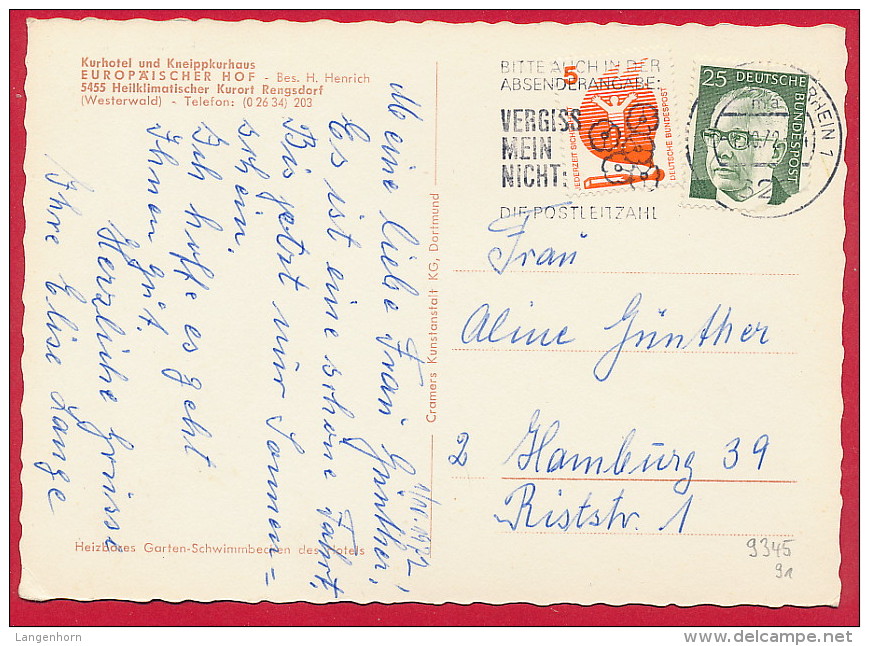 Kurhotel und Kneippkurhaus
EUROPÄISCHER HOF - Bes. H. Henrich
5455 Heilklimatischer Kurort Rengsdorf
(Westerwald) - Telefon: (0 26 34) 203
1/10.1972
Meine liebe Frau Günther,
Es ist eine schöne Fahrt.
Bis jetzt nur Sonnen=
schein.
Ich hoffe es geht
Ihnen gut.
Herzliche Grüsse
Ihre Elise Lange
Heizbares Garten-Schwimmbecken des Hotels
Cramers Kunstanstalt KG, Dortmund
BITTE AUCH IN DER
ABSENDERANGABE:
VERGISS
MEIN
NICHT:
DIE POSTLEITZAHL
5
JEDERZEIT SICHERHEIT
DEUTSCHE BUNDESPOST
25 DEUTSCHE BUNDESPOST
RHEIN 1
Frau
Aline Günther
2 Hamburg 39
Riststr. 1
9345
91
Langenhorn
delcampe.net